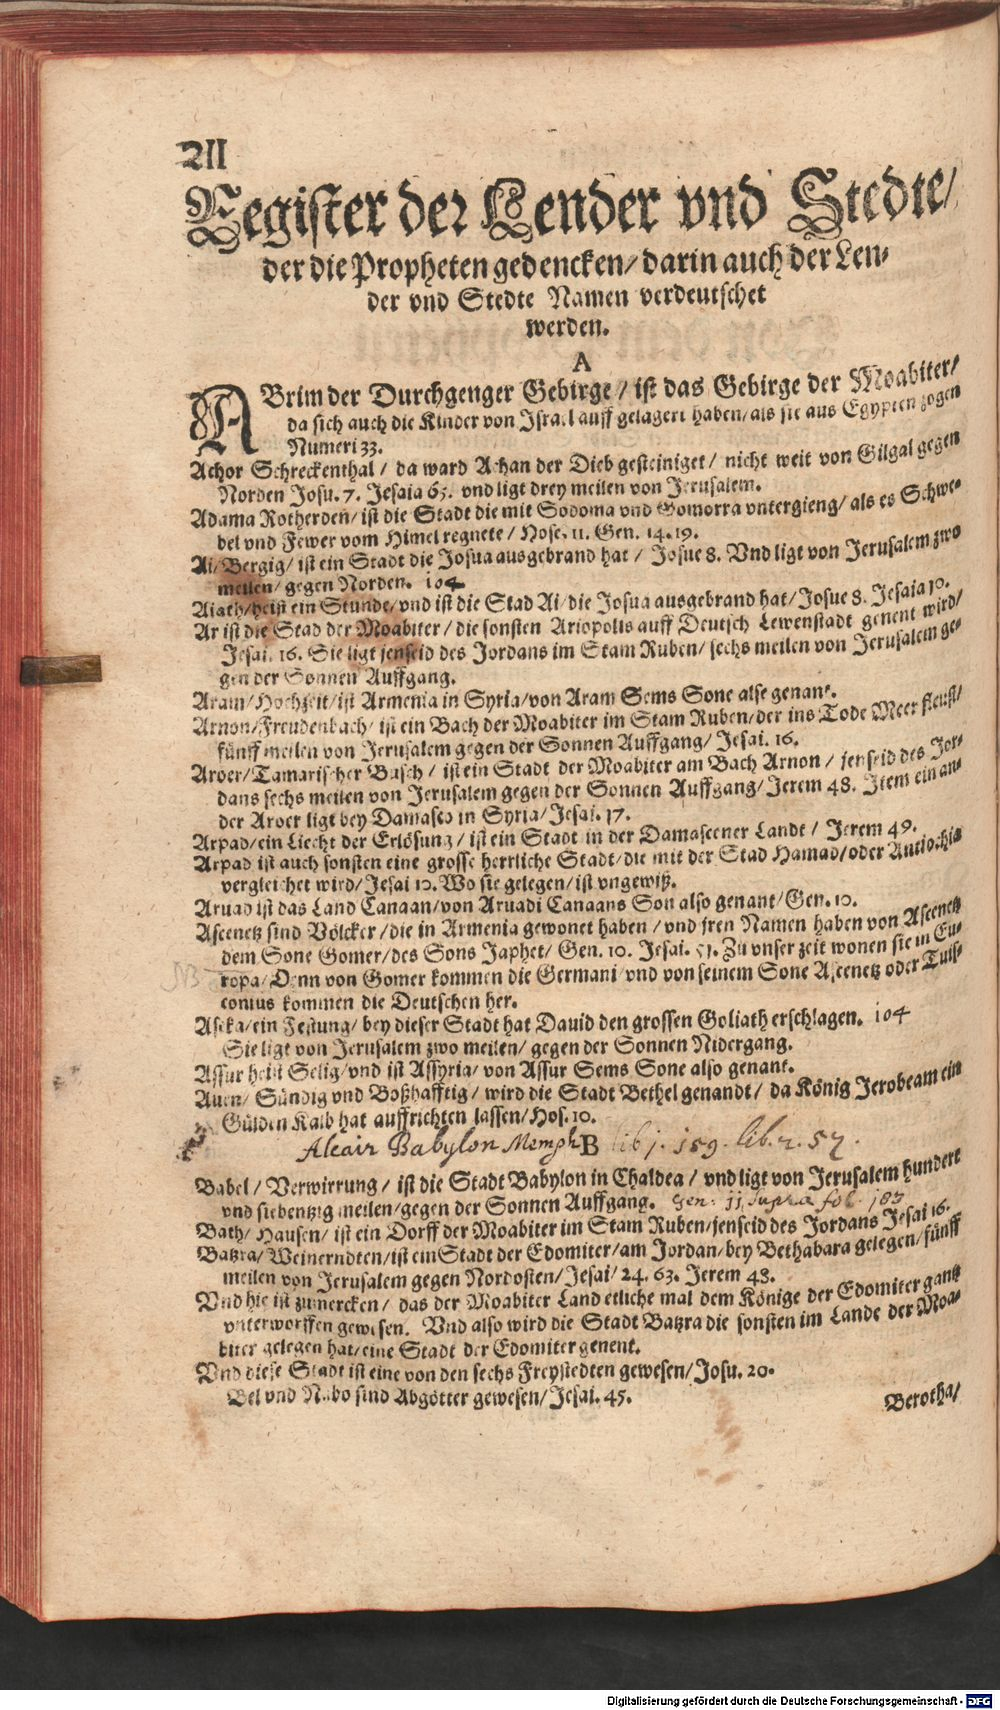 All
Register der Lender vnd Stedte/
der die Propheten gedencken/ darin auch der Len-
der vnd Stedte Namen verdeutschet
werden.
A
ABrim der Durchgenger Gebirge/ ist das Gebirge der Moabiter/
da sich auch die Kinder von Israel auff gelagert haben/ als sie aus Egypten zogen
Numeri 33.
Achor Schreckenthal/ da ward Achan der Dieb gesteiniget/ nicht weit von Gilgal gegen
Norden Josu. 7. Jesaia 65. vnd ligt drey meilen von Jerusalem.
Adama Rotherden/ ist die Stadt die mit Sodoma vnd Gomorra vntergieng/ als es Schwe-
bel vnd Fewer vom Himel regnete/ Hose. 11. Gen. 14. 19.
Ai/ Bergig/ ist ein Stadt die Josua ausgebrand hat/ Josue 8. Vnd ligt von Jerusalem zwo
meilen/ gegen Norden. 104
Aiath/ heist ein Stunde/ vnd ist die Stad Ai/ die Josua ausgebrand hat/ Josue 8. Jesaia 10.
Ar ist die Stad der Moabiter/ die sonsten Ariopolis auff Deutsch Lewenstadt genent wird/
Jesai. 16. Sie ligt jenseid des Jordans im Stam Ruben/ sechs meilen von Jerusalem ge-
gen der Sonnen Auffgang.
Aram/ Hochzeit/ ist Armenia in Syria/ von Aram Sems Sone also genant.
Arnon/ Freudenbach/ ist ein Bach der Moabiter im Stam Ruben/ der ins Tode Meer fleust/
fünff meilen von Jerusalem gegen der Sonnen Auffgang/ Jesai. 16.
Aroer/ Tamarischer Busch/ ist ein Stadt der Moabiter am Bach Arnon/ jenseid des Jor-
dans sechs meilen von Jerusalem gegen der Sonnen Auffgang/ Jerem 48. Item ein an-
der Aroer ligt bey Damasco in Syria/ Jesai. 17.
Arpad/ ein Liecht der Erlösung/ ist ein Stadt in der Damascener Landt/ Jerem 49.
Arpad ist auch sonsten eine grosse herrliche Stadt/ die mit der Stad Hamad/ oder Antiochia
vergleichet wird/ Jesai 10. Wo sie gelegen/ ist vngewiß.
Aruad ist das Land Canaan/ von Aruadi Canaans Son also genant/ Gen. 10.
Ascenetz sind Völcker/ die in Armenia gewonet haben/ vnd jren Namen haben von Ascenetz
dem Sone Gomer/ des Sons Japhet/ Gen. 10. Jesai. 51. Zu vnser zeit wonen sie in Eu-
NB
ropa/ Denn von Gomer kommen die Germani/ vnd von seinem Sone Ascenetz oder Tuis-
conius kommen die Deutschen her.
Aseka/ ein Festung/ bey dieser Stadt hat Dauid den grossen Goliath erschlagen. 104
Sie ligt von Jerusalem zwo meilen/ gegen der Sonnen Nidergang.
Assur heist Selig/ vnd ist Assyria/ von Assur Sems Sone also genant.
Auen/ Sündig vnd Boßhafftig/ wird die Stadt Bethel genandt/ da König Jerobeam ein
Gülden Kalb hat auffrichten lassen/ Hos. 10.
Alcair Babylon Memph B lib 1. 159. lib. 2. 57.
Babel/ Verwirrung/ ist die Stadt Babylon in Chaldea/ vnd ligt von Jerusalem hundert
vnd siebentzig meilen/ gegen der Sonnen Auffgang. gen. 11 supra fol. 103
Bath/ Hausen/ ist ein Dorff der Moabiter im Stam Ruben/ jenseid des Jordans Jesai 16.
Batzra/ Weinerndten/ ist ein Stadt der Edomiter/ am Jordan/ bey Bethabara gelegen/ fünff
meilen von Jerusalem gegen Nordosten/ Jesai/ 24. 63. Jerem 48.
Vnd hie ist zumercken/ das der Moabiter Land etliche mal dem Könige der Edomiter gantz
vnterworffen gewesen. Vnd also wird die Stadt Batzra die sonsten im Lande der Moa-
biter gelegen hat/ eine Stadt der Edomiter genent.
Vnd diese Stadt ist eine von den sechs Freystedten gewesen/ Josu. 20.
Bel vnd Nebo sind Abgötter gewesen/ Jesai. 45.
Berotha/
Digitalisierung gefördert durch die Deutsche Forschungsgemeinschaft - DFG